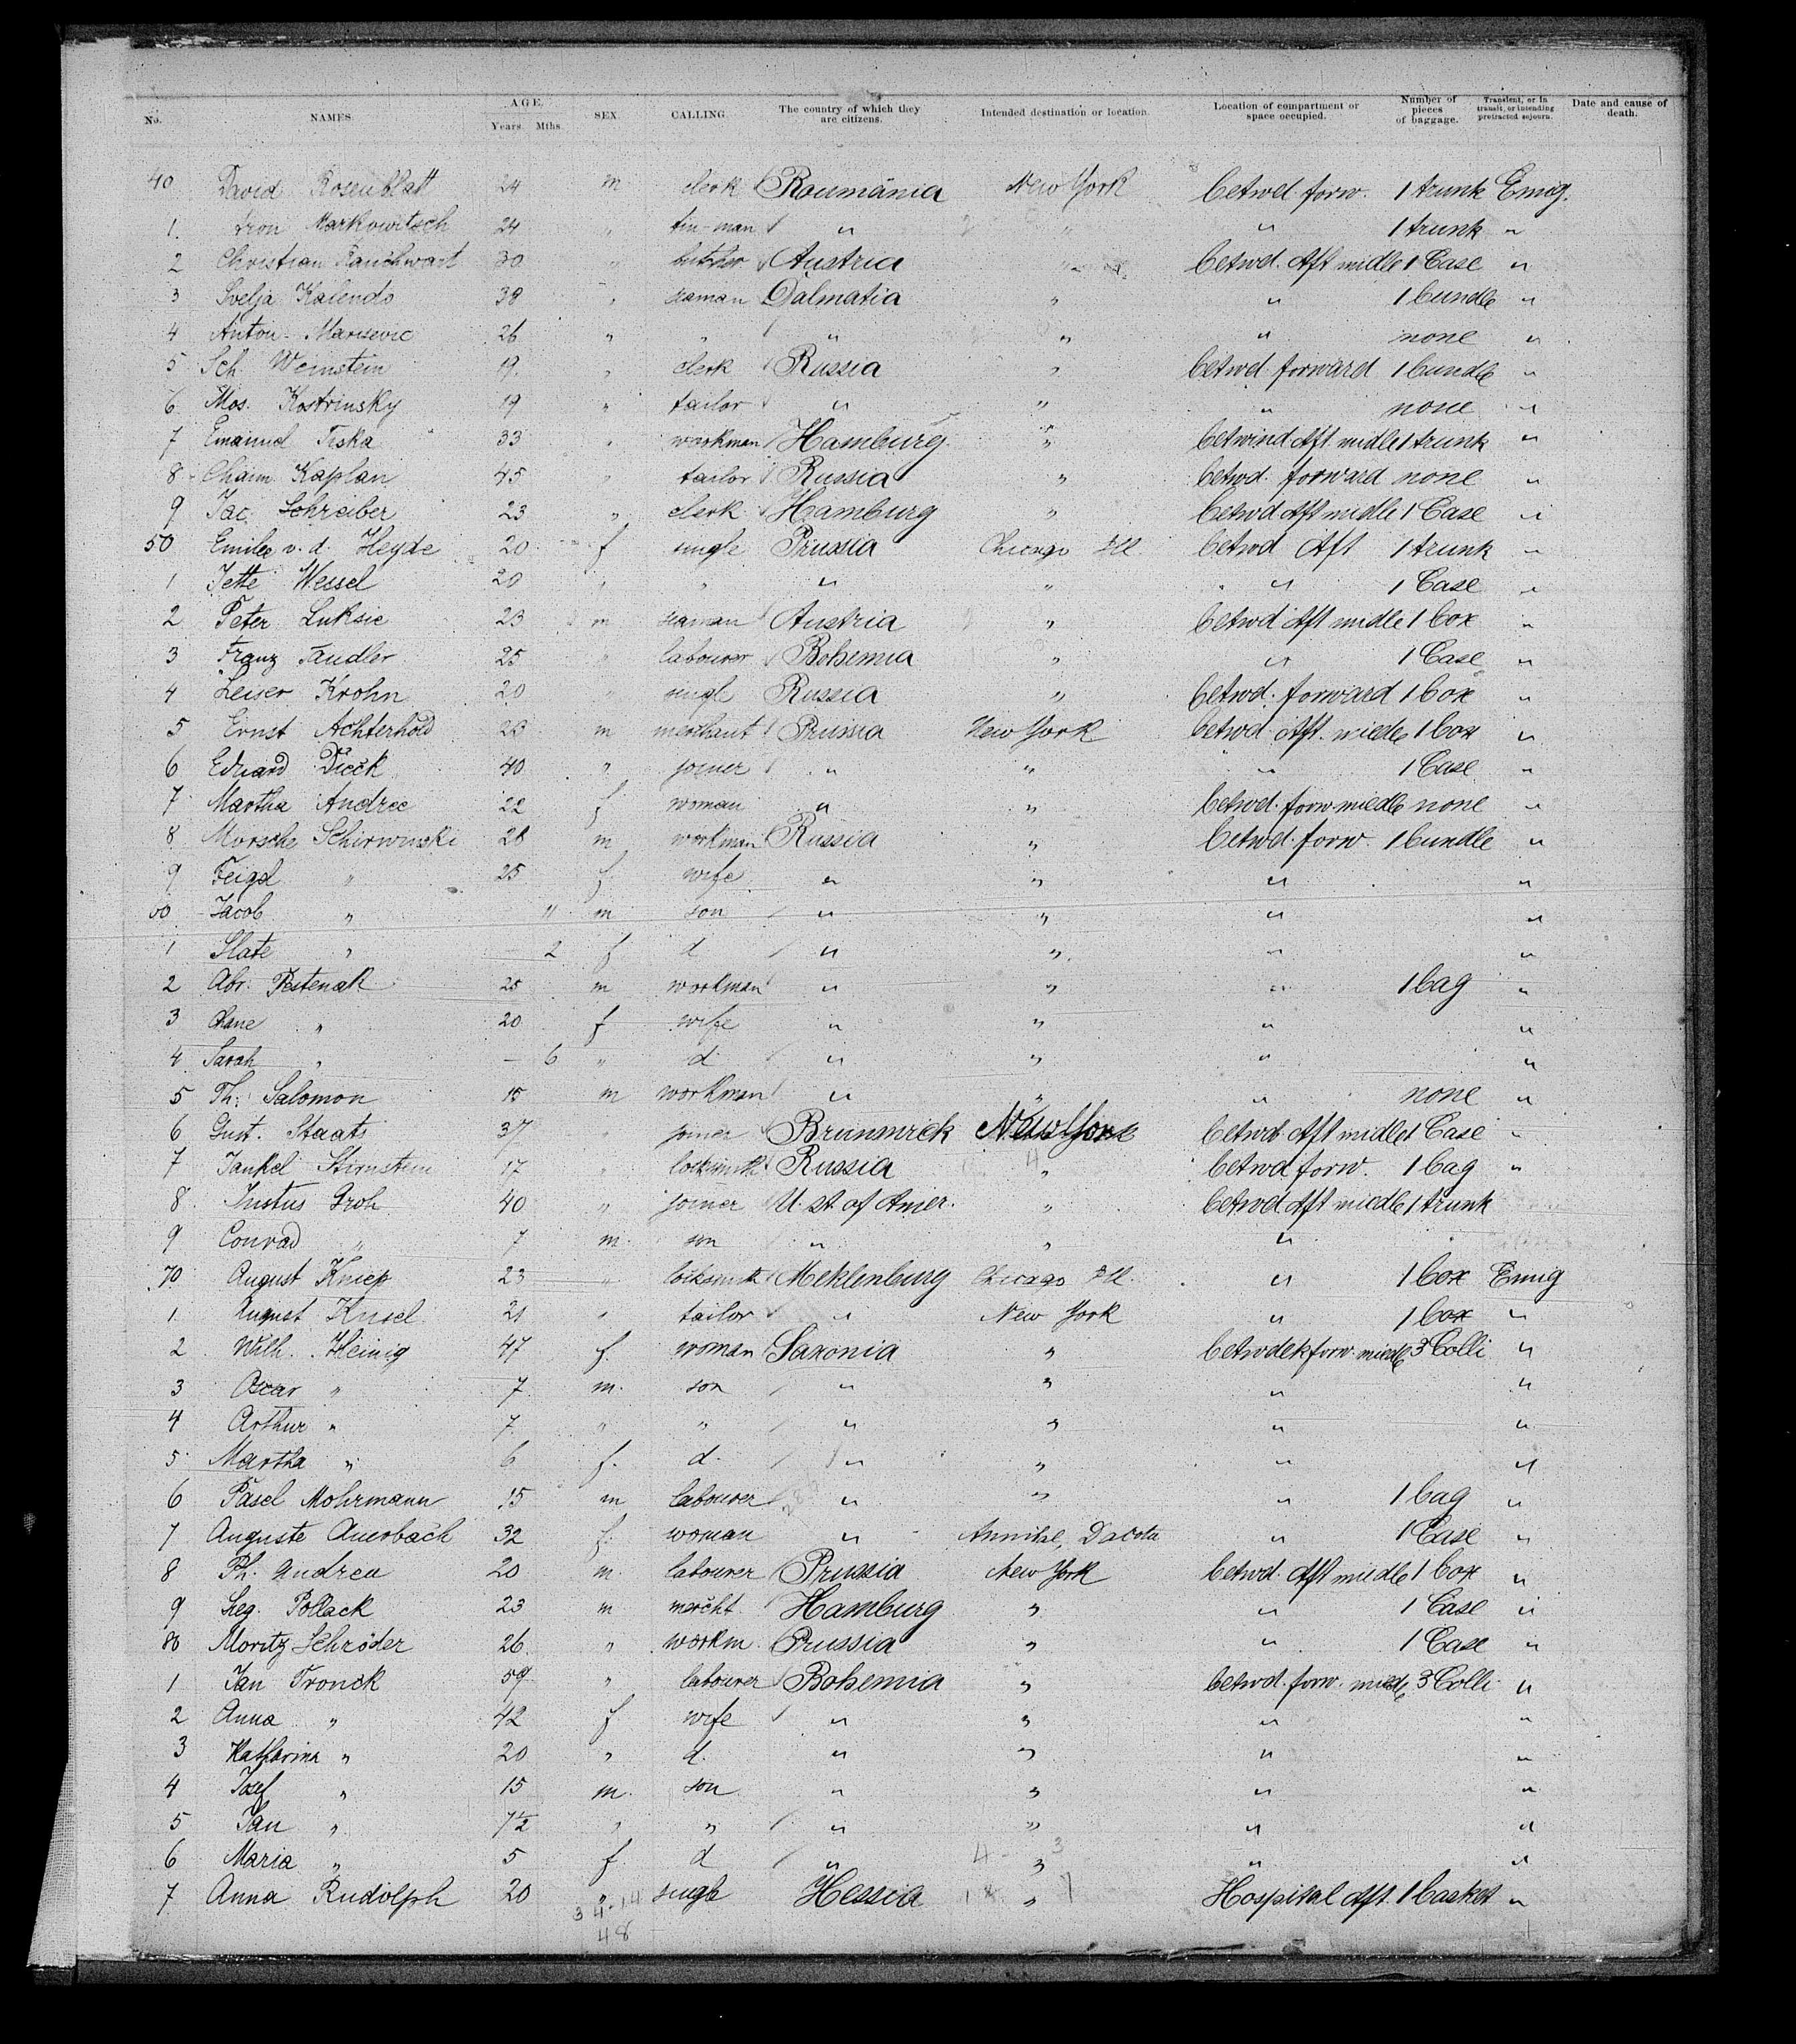 No. NAMES. AGE. Years. Mths. SEX. CALLING. The country of which they are citizens. Intended destination or location. Location of compartment or space occupied. Number of pieces of baggage. Transient, or in transit, or intending protracted sojourn. Date and cause of death.
40 David Rosenblatt 24 m clerk Roumania New York betwd. forw. 1 trunk Emig.
1. Aron Markowitsch 24 " tin-man " " " 1 trunk "
2 Christian 30 " butcher Austria " betwd. Aft midle 1 Case "
3 Svelja Kalendo 38 " seaman Dalmatia " " 1 bundle "
4 Anton Marisevic 26 " " " " " none "
5 Sch. Weinstein 19. " clerk Russia " betwd. forward 1 bundle "
6 Mos. Kostrinsky 19 " tailor " " " none "
7 Emanuel Tiska 33 " workman Hamburg " betwind Aft midle 1 trunk "
8 Chaim Kaplan 45 " tailor Russia " betwd. forward none "
9 Jac. Schreiber 23 " clerk Hamburg " betwd Aft midle 1 Case "
50 Emilie v. d. Heyde 20 f single Prussia Chicago Ill. betwd Aft 1 trunk "
1 Jette Wessel 20 " " " " " 1 Case "
2 Peter Luksic 23 m seaman Austria " betwd Aft midle 1 box "
3 Franz Taudler 25 " labourer Bohemia " " 1 Case "
4 Leiser Krohn 20 " singl Russia " betwd. forward 1 box "
5 Ernst Achterhold 20 m merchant Prussia New York betwd. Aft. midle 1 box "
6 Eduard Dieck 40 " joiner " " " 1 Case "
7 Martha Andree 22 f woman " " betwd. forw. miedle none "
8 Morsche Schirwinski 28 m workman Russia " betwd. forw. 1 bundle "
9 Feigel " 25 f wife " " " "
60 Jacob " 11 m son " " " "
1 Slate " 2 f d " " " "
2 Abr. Pestenak 25 m workman " " " 1 bag "
3 Chane " 20 f wife " " " "
4 Sarah " — 6 " d. " " " "
5 Th. Salomon 15 m workman " " " none "
6 Gust. Staats 37 " joiner Brunswick New York betwd. Aft midle 1 Case "
7 Jankel Stirnstein 17 " locksmith Russia " betwd forw. 1 bag "
8 Justus Groh 40 " joiner U. St. of Amer. " betwd Aft miedle 1 trunk
9 Conrad " 7 m. son " " "
70 August Kniep 23 " locksmith Meklenburg Chicago Ill. " 1 box Emig
1 August Knisel 21 " tailor " New York " 1 box "
2 Wilh. Heinig 47 f. woman Saxonia " betwdek forw. miedle 3 Colli "
3 Oscar " 7 m. son " " " "
4 Arthur " 7 " " " " " "
5 Martha " 6 f. d. " " " "
6 Pasel Mohrmann 15 m labourer " " " 1 bag "
7 Auguste Auerbach 32 f. woman " Dacota " 1 Case "
8 Ph. Andrea 20 m. labourer Prussia New York betwd. Aft miedle 1 box "
9 Sieg. Pollack 23 m mercht Hamburg " " 1 Case "
80 Moritz Schröder 26. " workm. Prussia " " 1 Case "
1 Jan Tronck 59 " labourer Bohemia " betwd. forw. miedle 3 Colli "
2 Anna " 42 f wife " " " "
3 Katharina " 20 " d. " " " "
4 Josef " 15 m. son " " " "
5 Jan " 7½ " " " " " "
6 Maria " 5 f d " " " "
7 Anna Rudolph 20 " single Hessia " Hospital Aft. 1 basket "
34-14
48